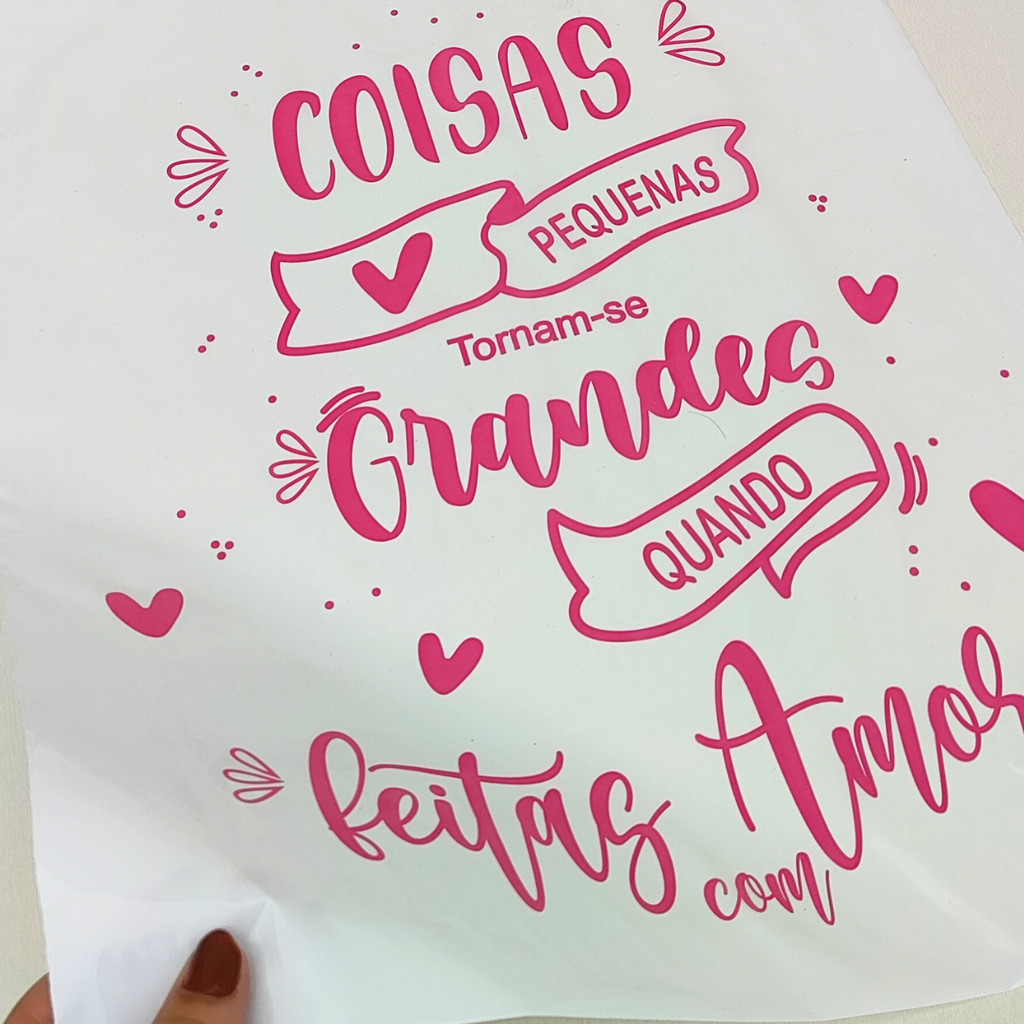 COISAS
PEQUENAS
Tornam-se
Grandes
QUANDO
feitas
com
Amor